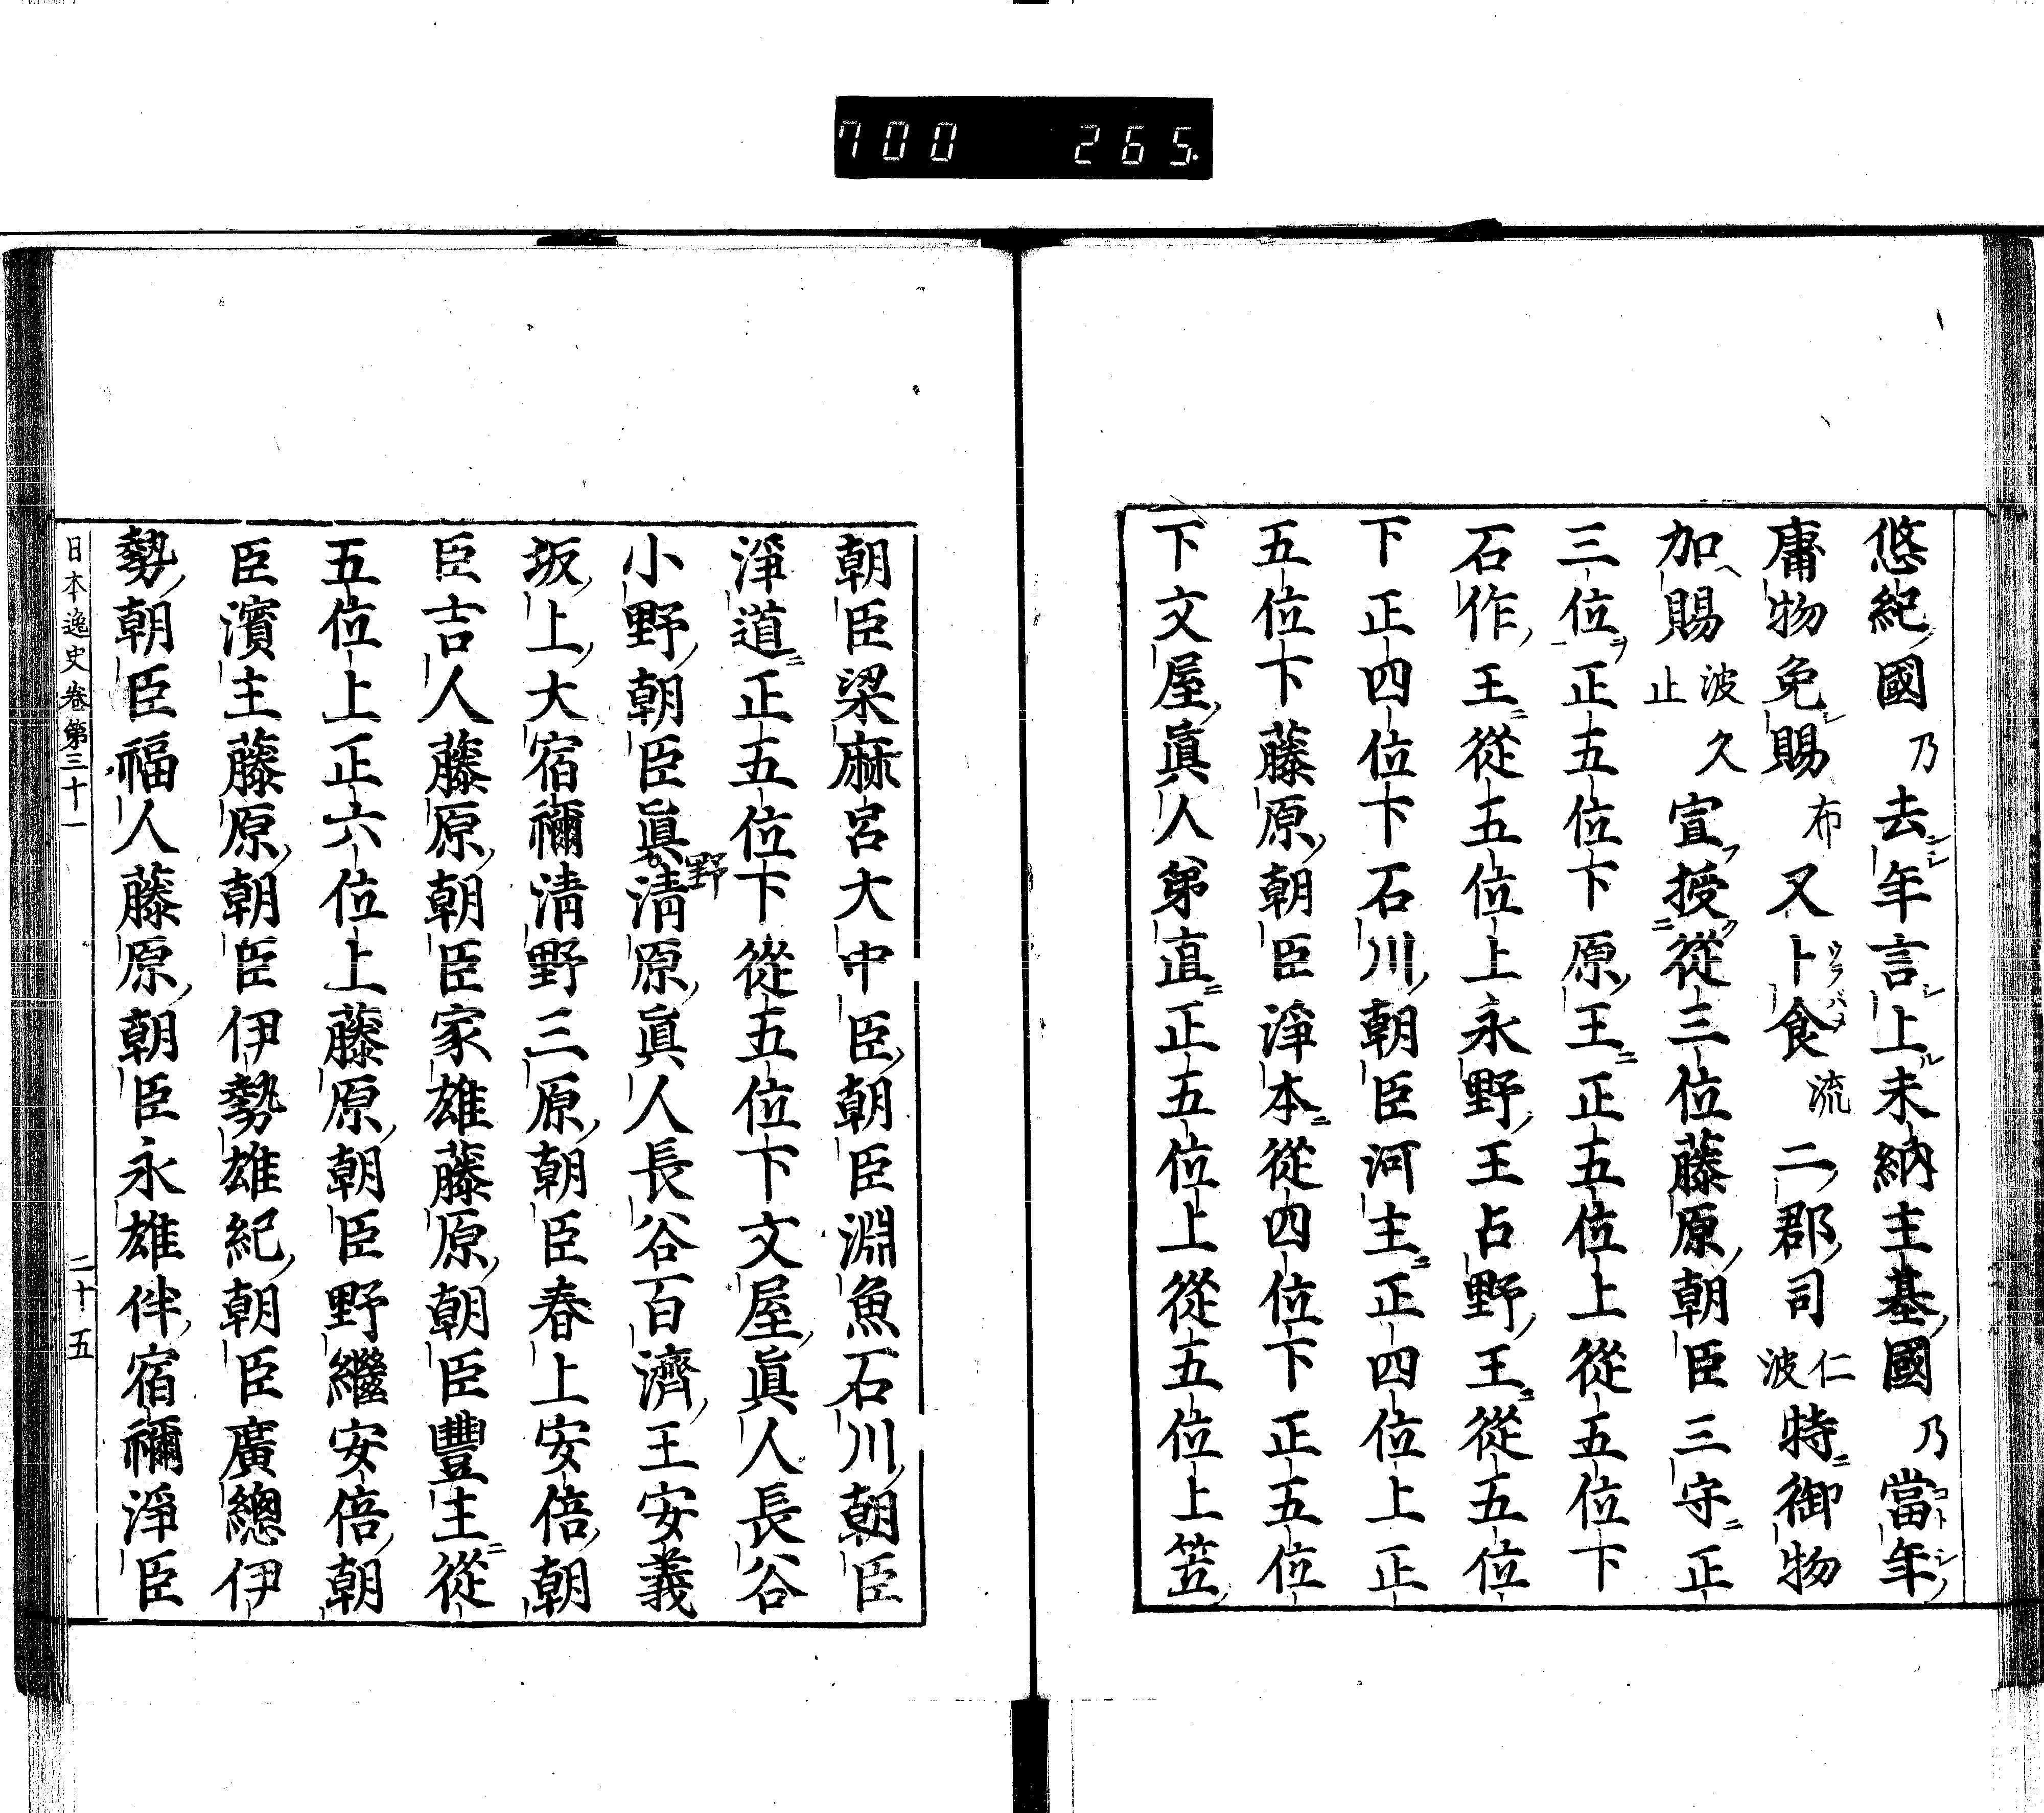 700 265.
悠紀國乃去年言上未納主基國乃當年
庸物免賜布又卜食流二郡司仁波特御物
加賜波久止宣授從三位藤原朝臣三守正
三位正五位下原王正五位上從五位下
石作王從五位上永野王占野王從五位
下正四位下石川朝臣河主正四位上正
五位下藤原朝臣淨本從四位下正五位
下文屋眞人弟直正五位上從五位上笠
朝臣梁麻呂大中臣朝臣淵魚石川朝臣
淨道正五位下從五位下文屋眞人長谷
小野朝臣眞野清原眞人長谷百濟王安義
坂上大宿禰淸野三原朝臣春上安倍朝
臣吉人藤原朝臣家雄藤原朝臣豐主從
五位上正六位上藤原朝臣野繼安倍朝
臣濱主藤原朝臣伊勢雄紀朝臣廣總伊
勢朝臣福人藤原朝臣永雄伴宿禰淨臣
日本逸史卷第三十一 二十五